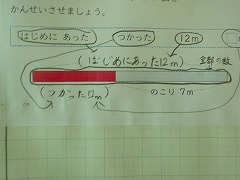 かんせいさせましょう。
はじめに あった つかった 12m
(はじめにあった12m) 全部の数
(つかった□m) のこり 7m